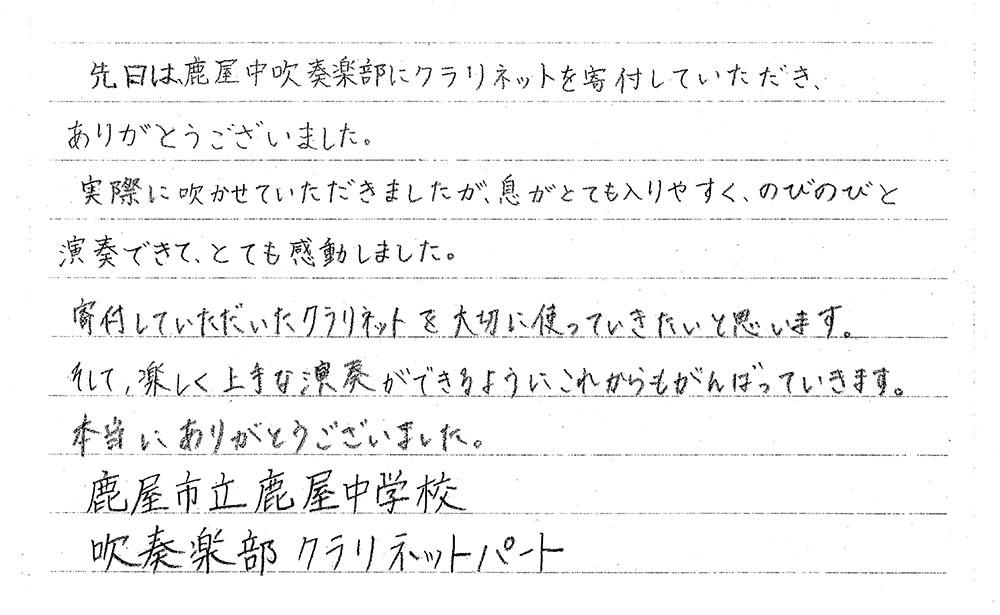 先日は鹿屋中吹奏楽部にクラリネットを寄付していただき、
ありがとうございました。
実際に吹かせていただきましたが、息がとても入りやすく、のびのびと
演奏できて、とても感動しました。
寄付していただいたクラリネットを大切に使っていきたいと思います。
そして、楽しく上手な演奏ができるようにこれからもがんばっていきます。
本当にありがとうございました。
鹿屋市立鹿屋中学校
吹奏楽部クラリネットパート